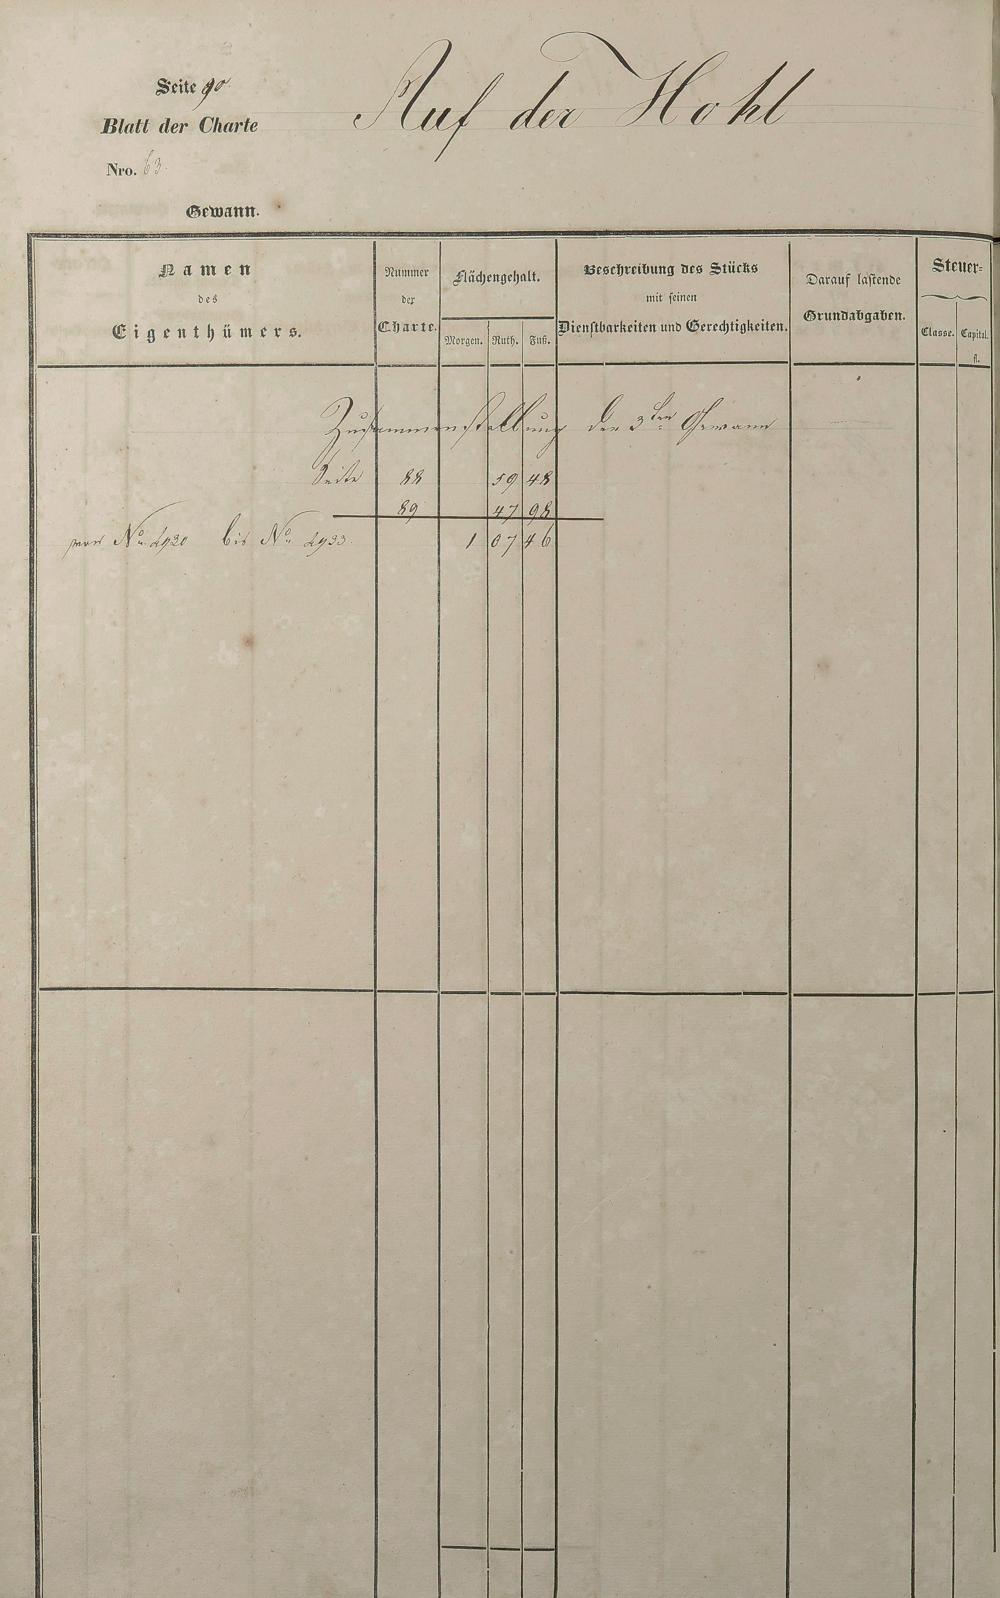 Seite 90
Auf der Hohl
Blatt der Charte
Nro. 63.
Gewann.
Namen des Eigenthümers.
Nummer der Charte.
Flächengehalt.
Morgen. Ruth. Fuß.
Beschreibung des Stücks mit seinen Dienstbarkeiten und Gerechtigkeiten.
Darauf lastende Grundabgaben.
Steuer=
Classe. Capital. fl.
Zusammenstellung der 3ten Gewann
Seite 88 59 48
89 47 98
von No. bis No. 1 07 46